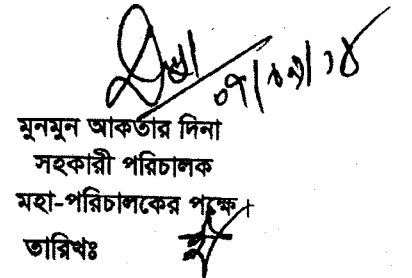 ০৭/১২/১৪
মুনমুন আকতার দিনা
সহকারী পরিচালক
মহা-পরিচালকের পক্ষে।
তারিখঃ